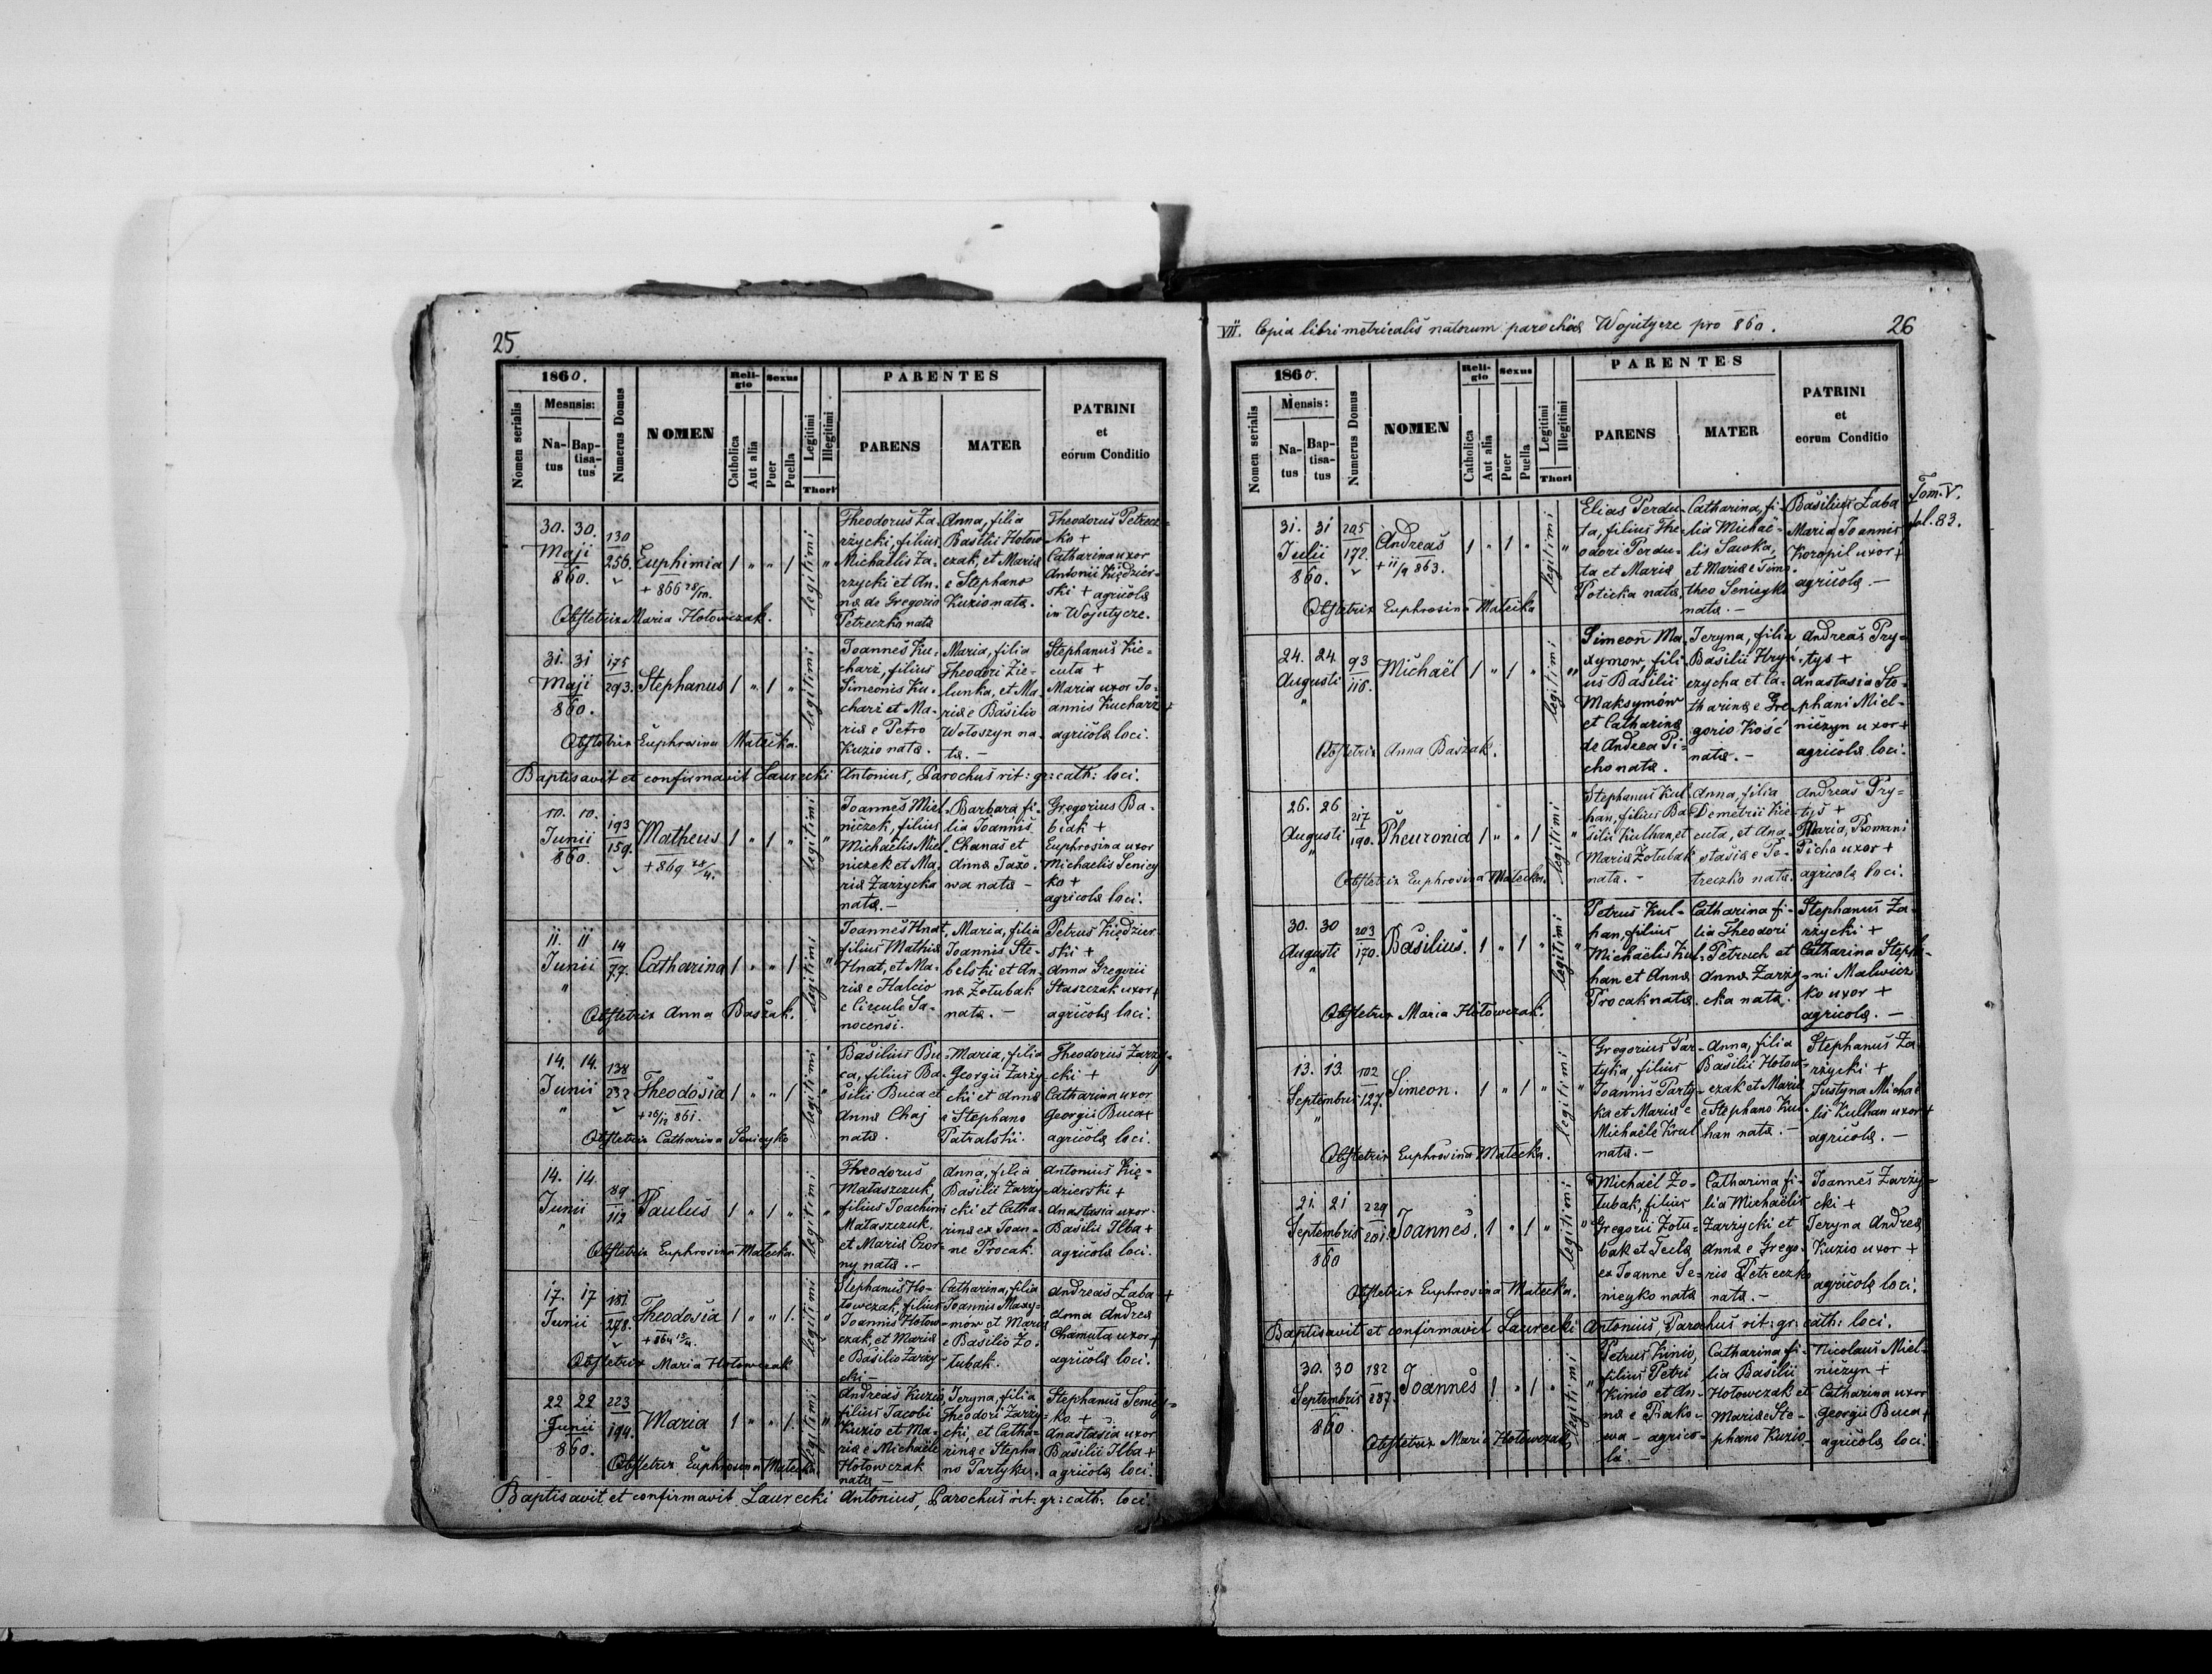 25
1860.
Mesnsis:
Nomen serialis
Na-
tus
Bap-
tisa-
tus
Numerus Domus
NOMEN
Reli-
gio
Catholica
Aut alia
Sexus
Puer
Puella
Legitimi
Illegitimi
Thori
PARENTES
PARENS
MATER
PATRINI
et
eorum Conditio
30. 30.
Maji
860.
130
256.
Euphimia
+ 866 28/
1 " " 1
legitimi
"
Theodorus Za-
rzycki, filius
Michaelis Za-
rzycki et An-
na de Gregorio
Petreczko nata
Anna, filia
Basilii Hołow-
czak, et Maria
e Stephano
Kuzio nata.
Theodorus Petrecz-
ko +
Catharina uxor
Antonii Kiędzier-
ski + agricolæ
in Wojutycze.
Obstetrix Maria Hołowczak.
31. 31
Maji
860.
175
293.
Stephanus
1 " 1 "
legitimi
Joannes Ku-
charz, filius
Simeonis Ku-
charz et Ma-
ria e Petro
Kuzio nata.
Maria, filia
Theodori Zie-
lunka, et Ma-
ria e Basilio
Wołoszyn na-
ta. -
Stephanus Kie-
cuta +
Maria uxor Jo-
annis Kucharz +
agricolæ loci.
Obstetrix Euphrosina Małecka.
Baptisavit et confirmavit Laurecki Antonius, Parochus rit: gr: cath: loci.
10. 10.
Junii
860.
193
159.
Matheus
+ 869 28/4.
1 " 1 "
legitimi
"
Joannes Miel-
niczek, filius
Michaelis Miel-
niczek et Ma-
ria Zarzycka
nata. -
Barbara fi-
lia Joannis
Chanas et
Anna Jażo-
wa nata -
Gregorius Ba-
biak +
Euphrosina uxor
Michaelis Seniey
ko +
agricolæ loci.
11. 11
Junii
"
14
77.
Catharina
1 " " 1
legitimi
"
Joannes Hnat,
filius Mathia
Hnat, et Ma-
ria e Halcio
e Circulo Sa-
nocensi.
Maria, filia
Joannis Ste-
belski et An-
na Zołubak
nata. -
Petrus Kiędzier
ski +
Anna Gregorii
Staszczak uxor +
agricolæ loci.
Obstetrix Anna Baszak.
14. 14.
Junii
"
138
232
Theodosia
+ 26/12 861.
1 " " 1
legitimi
"
Basilius Bu-
ca, filius Ba-
silii Buca et
Anna Chaj
nata.
Maria, filia
Georgii Zarzy-
cki et Anna
e Stephano
Patralski.
Theodorus Zarzy-
cki +
Catharina uxor
Georgii Buca +
agricolæ loci.
Obstetrix Catharina Senieyko
14. 14.
Junii
"
89
112
Paulus
1 " 1 "
legitimi
"
Theodorus
Mataszczuk,
filius Joachimi
Mataszczuk.
et Maria Czor-
ny nata. -
Anna, filia
Basilii Zarzy-
cki et Catha-
rina ex Joan-
ne Procak.
Antonius Kię-
dzierski +
Anastasia uxor
Basilii Ilba +
agricolæ loci.
Obstetrix Euphrosina Małecka.
17. 17
Junii
181
278.
Theodosia
+ 864
1 " " 1.
legitimi
"
Stephanus Ho-
łowczak, filius
Joannis Hołow-
czak, et Maria
e Basilio Zarzy
cki -
Catharina, filia
Joannis Maxy-
mow et Maria
e Basilio Zo-
łubak.
Andreas Łaba +
Anna Andrea
Chamuta uxor +
agricolæ loci.
Obstetrix Maria Hołowczak
22 22
Junii
860.
223
194.
Maria
1 " " 1.
legitimi
"
Andreas Kuzio,
filius Jacobi
Kuzio et Ma-
ria e Michaele
Hołowczak
nata -
Jeryna, filia
Theodori Zarzy-
cki, et Catha-
rina e Stepha-
no Partyka.
Stephanus Seniey-
ko +
Anastasia uxor
Basilii Ilba +
agricolæ loci.
Obstetrix Euphrosina Małecka.
Baptisavit et confirmavit Laurecki Antonius, Parochus rit: gr: cath: loci.
VII. Copia libri metricalis natorum parochiæ Wojutycze pro 860.
26
1860.
Mensis:
Nomen serialis
Na-
tus
Bap-
tisa-
tus
Numerus Domus
NOMEN
Reli-
gio
Catholica
Aut alia
Sexus
Puer
Puella
Legitimi
Illegitimi
Thori
PARENTES
PARENS
MATER
PATRINI
et
eorum Conditio
31. 31
Julii
860.
205
172.
Andreas
+ 11/9 863.
1 " 1 "
legitimi
"
Elias Perdu-
ta, filius The-
odori Perdu-
ta et Maria
Poticka nata,
Catharina, fi-
lia Michae-
lis Sawka,
et Maria e Timo-
theo Senieyko
nata. -
Basilius Łaba
Maria Joannis
Koropil uxor +
agricolæ. -
Tom. V.
fol. 83.
Obstetrix Euphrosina Małecka
24. 24
Augusti
"
93
116.
Michaël
1 " 1 "
legitimi
"
Simeon Ma-
xymow, fili-
us Basilii
Maksymów
et Catharina
de Andrea Pi-
cho nata.
Jeryna, filia
Basilii Hry-
czycha et Ca-
tharina e Gre-
gorio Kość
nata. -
Andreas Pry-
tys +
Anastasia Ste-
phani Miel-
niczyn uxor +
agricolæ loci.
Obstetrix Anna Baszak.
26. 26
Augusti
"
217
190.
Pheuronia
1 " " 1
legitimi
"
Stephanus Kul-
han, filius Ba-
silii Kulhan, et
Maria Zołubak
nata. -
Anna, filia
Demetrii Kie-
cuta, et Ana-
stasia e Pe-
treczko nata.
Andreas Pry-
tys +
Maria, Romani
Picho uxor +
agricolæ loci.
Obstetrix Euphrosina Małecka.
30. 30
Augusti
"
203
170.
Basilius.
1 " 1 "
legitimi
"
Petrus Kul-
han, filius
Michaëlis Kul-
han et Anna
Procak nata.
Catharina fi-
lia Theodori
Petruch et
Anna Zarzy-
cka nata.
Stephanus Za-
rzycki +
Catharina Stepha-
ni Malwicz
ko uxor +
agricolæ. -
Obstetrix Maria Hołowczak.
13. 13.
Septembris
"
102
127.
Simeon.
1 " 1 "
legitimi
"
Gregorius Par-
tyka, filius
Joannis Party-
ka et Maria e
Michaële Krul
nata. -
Anna, filia
Basilii Hołow-
czak et Maria
e Stephano Kul-
han nata. -
Stephanus Za-
rzycki +
Justyna Michaë
lis Kulhan uxor +
agricolæ. -
Obstetrix Euphrosina Małecka.
21. 21
Septembris
860
229
201.
Joannes.
1 " 1 "
legitimi
"
Michaël Zo-
łubak, filius
Gregorii Zołu-
bak et Tecla
ex Joanne Se-
nieyko nata
Catharina fi-
lia Michaëlis
Zarzycki et
Anna e Grego-
rio Petreczko
nata. -
Joannes Zarzy-
cki +
Jeryna Andrea
Kuzio uxor +
agricolæ loci.
Obstetrix Euphrosina Małecka.
Baptisavit et confirmavit Laurecki Antonius, Parochus rit: gr: cath: loci.
30. 30
Septembris
860
182
287.
Joannes
1 " 1 "
legitimi
"
Petrus Kinio,
filius Petri
Kinio et An-
na e Piako-
wa - agrico-
la. -
Catharina fi-
lia Basilii
Hołowczak et
Maria e Ste-
phano Kuzio -
Nicolaus Miel-
niczyn +
Catharina uxor
Georgii Buca +
agricolæ loci.
Obstetrix Maria Hołowczak